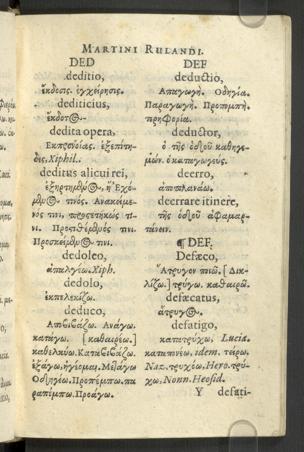 MARTINI RULANDI.
DED
deditio,
ἔκδοσις. ἐγχείρησις.
dediticius,
ἔκδοτος.
dedita opera,
δις, Xiphil.
deditus alicui rei,
νός τινι.
Προσκείμενός τινι.
dedoleo,
ἀπαλγέω. Xiph.
dedolo,
ἐκπελεκίζω.
deduco,
Ἀποβιβάζω. Ἀνάγω.
κατάγω. [καθαιρέω.]
καθελκύω. Καταβιβάζω.
ἐξάγω, ἡγέομαι. Μετάγω
Ὁδηγέω. Προπέμπω. πα
ραπέμπω. Προάγω.
DEF
deductio,
Ἀπαγωγή. Ὁδηγία.
Παραγωγή. Προπομπή.
deductor,
ὁ τῆς ὁδοῦ καθηγε-
μών. ὁ καταγωγεύς.
deerro,
ἀποπλανάω.
deerrare itinere,
τῆς ὁδοῦ ἀφαμαρ-
τάνειν.
¶ DEF.
Defæco,
Ἄτρυγον ποιῶ. [Διυ-
λίζω.] τρύγω. καθαιρῶ.
defæcatus,
ἄτρυγος.
defatigo,
κατατρύχω, Lucia.
καταπονέω, idem. τείρω,
Naz. τρυχόω, Hero. τρύ-
χω, Nonn. Hesiod.
Y defati-